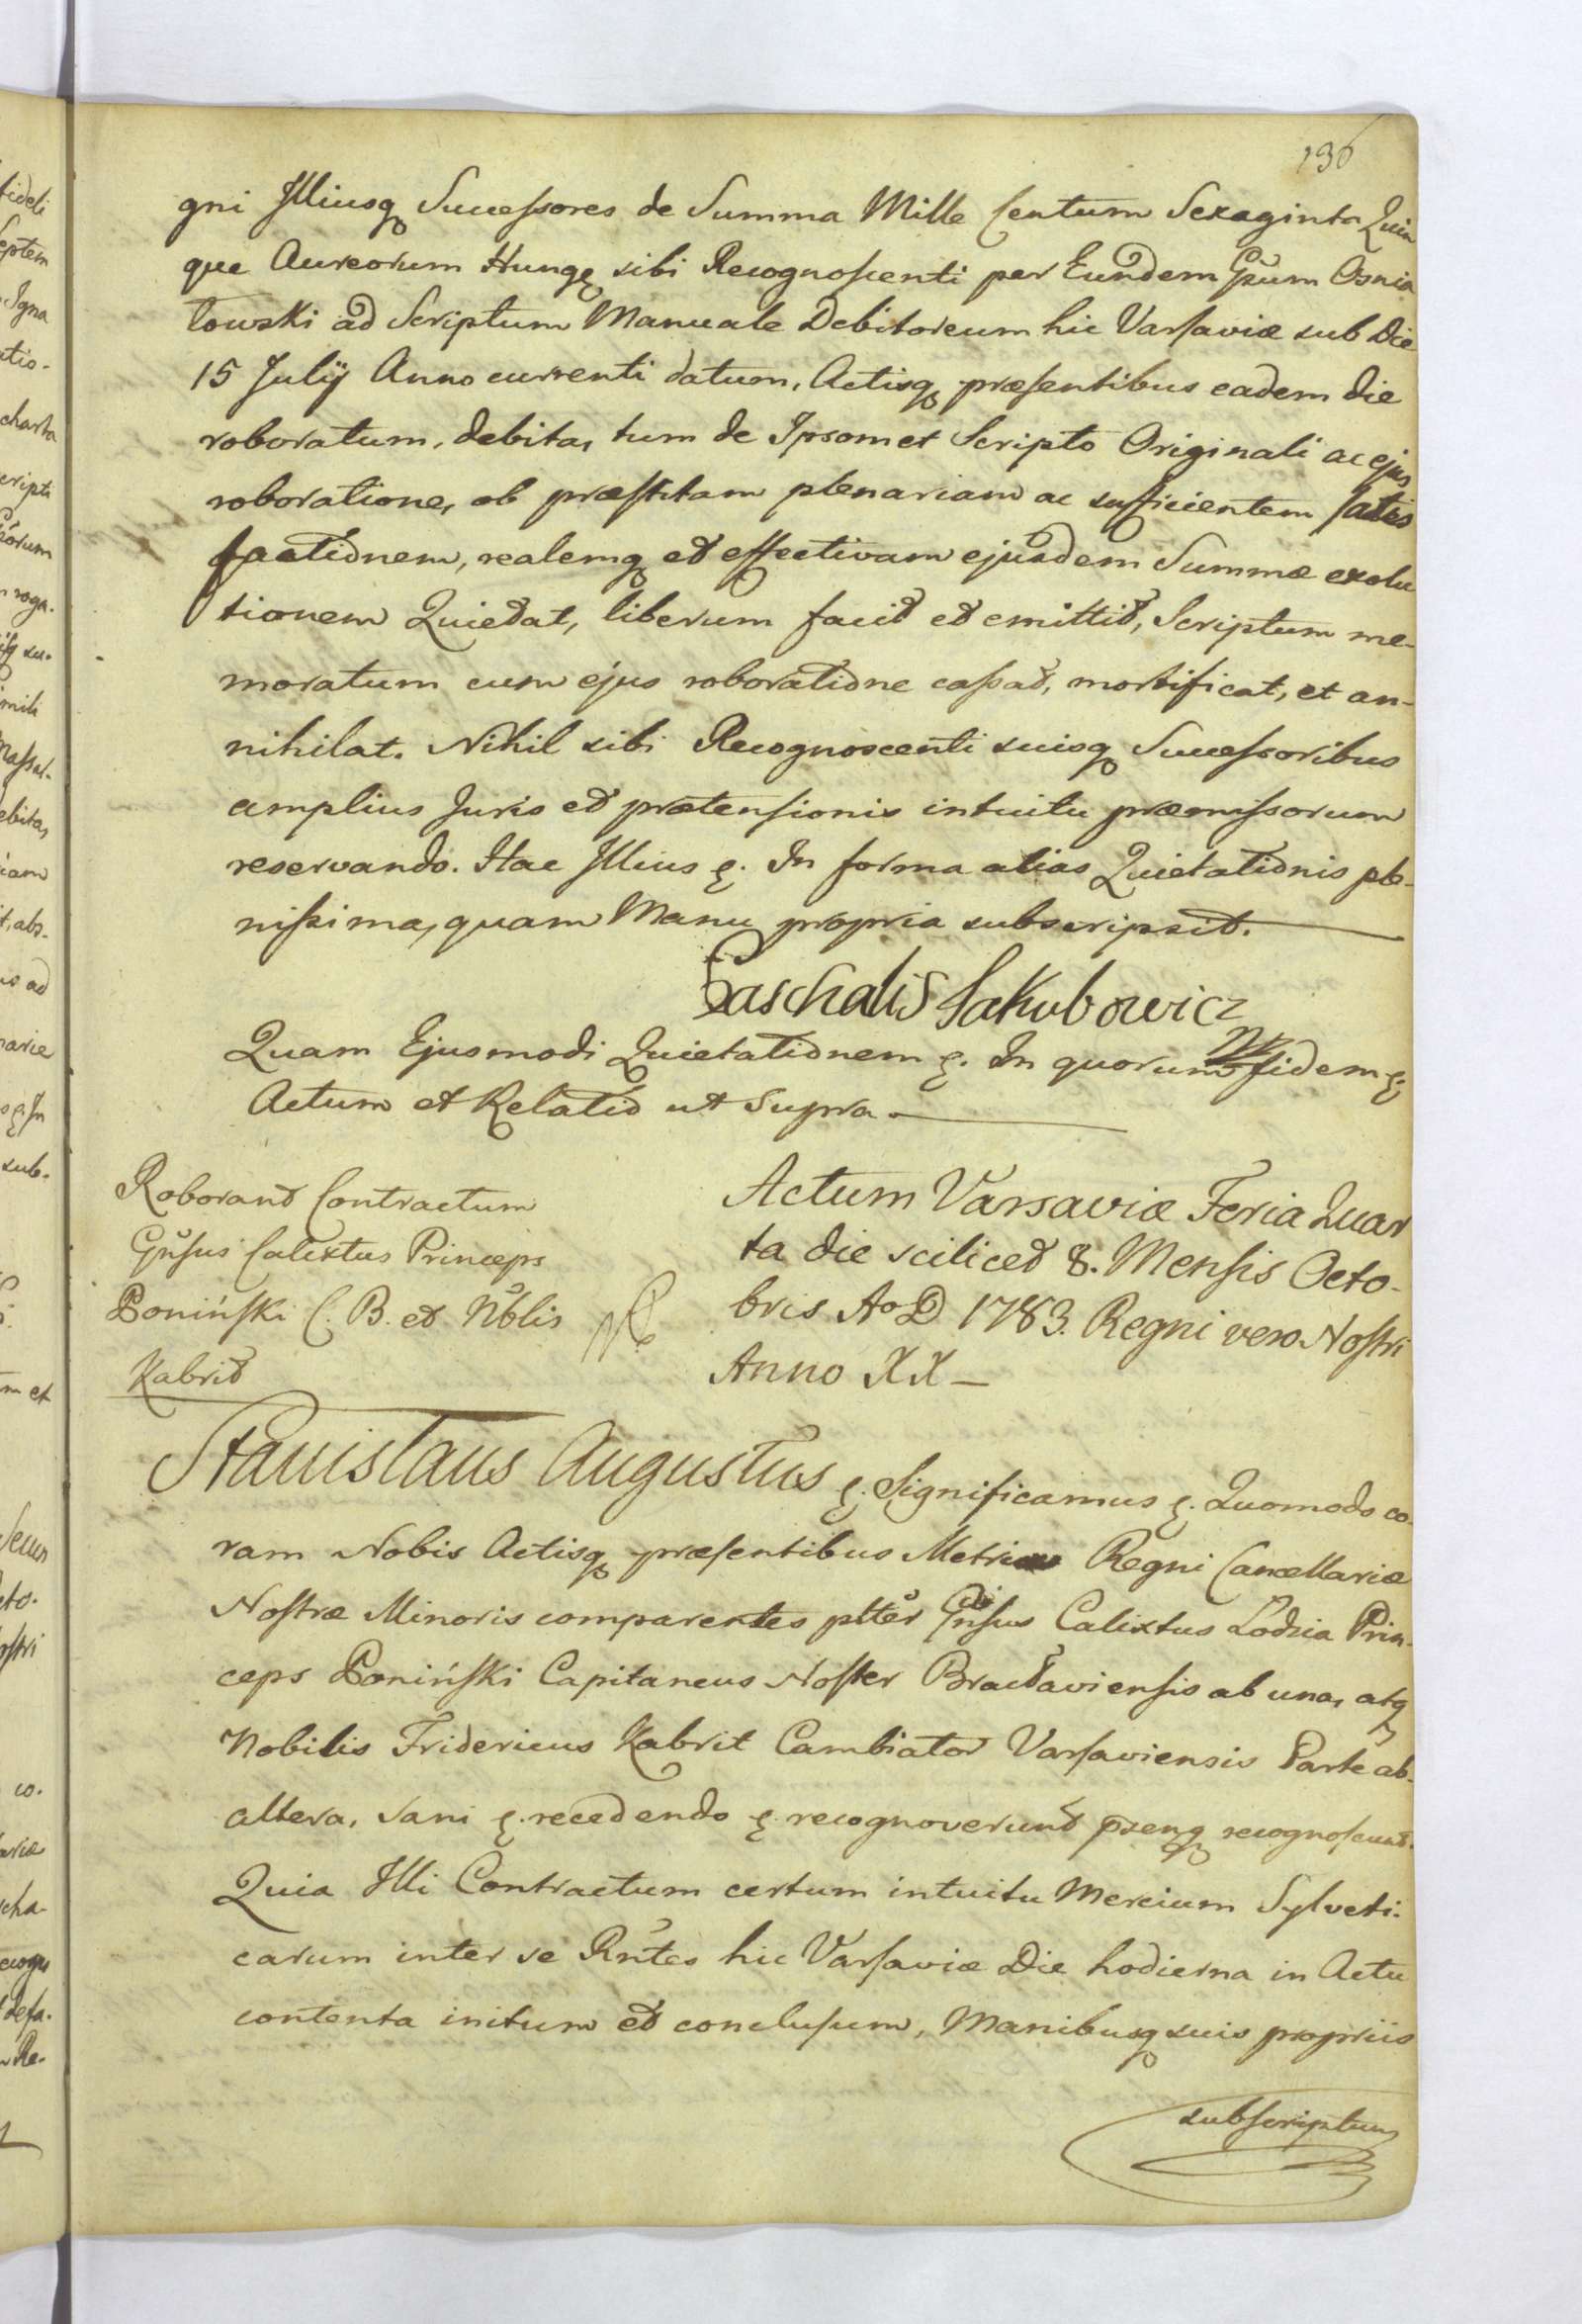 136
gni Illiusq Successores de Summa Mille Centum Sexaginta Quin
que Aureorum Hungę sibi Recognoscenti per Eundem Gsum Osnia
towski ad Scriptum Manuale Debitoreum hic Varsaviæ sub Die
15 Julÿ Anno currenti datum, Actisq præsentibus eadem die
roboratum, debita, tum de Ipsomet Scripto Originali ac ejus
roboratione, ob præstitam plenariam ac sufficientem satis
factionem, realemq et effectivam ejusdem Summæ exolu
tionem Quietat, liberum facit et emittit, Scriptum me-
moratum cum ejus roboratione cassat, mortificat, et an-
nihilat. Nihil sibi Recognoscenti suisq Successoribus
amplius Juris et prætensionis intuitu præmissorum
reservando. Hac Illius ę. In forma alias Quietationis ple-
nissima, quam Manu propria subscripsit.
Paschalis Jakubowicz
Quam Ejusmodi Quietationem ę. In quorum fidem ę.
Actum et Relatio ut Supra
Roborant Contractum
Gnsus Calixtus Princeps
Poniński C. B. et Nblis
Kabrit
Actum Varsaviæ Feria Quar
ta die scilicet 8. Mensis Octo-
bris Ao D 1783. Regni vero Nostri
Anno XX
Stanislaus Augustus ę. Significamus ę. Quomodo co-
ram Nobis Actisq præsentibus Regni Cancellariæ
Nostræ Minoris comparentes pltter Gnsus Calixtus Lodzia Prin-
ceps Poniński Capitaneus Noster Bractaviensis ab una, atq
Nobilis Fridericus Kabrit Cambiator Varsaviensis Parte ab-
altera, sani ę. recedendo ę recognoverunt pzenq recognoscunt.
Quia Illi Contractum certum intuitu Mercium Sylvesti-
carum inter se Rntes hic Varsaviæ Die hodierna in Actu
contenta initum et conclusum, Manibusq suis propriis
subscriptum